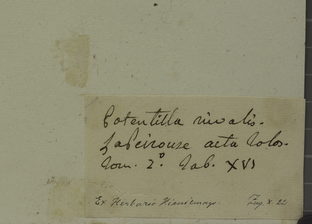 Potentilla nivalis.
Lapeirouse acta tolos.
tom. 2.° tab. XVI
Ex Herbario